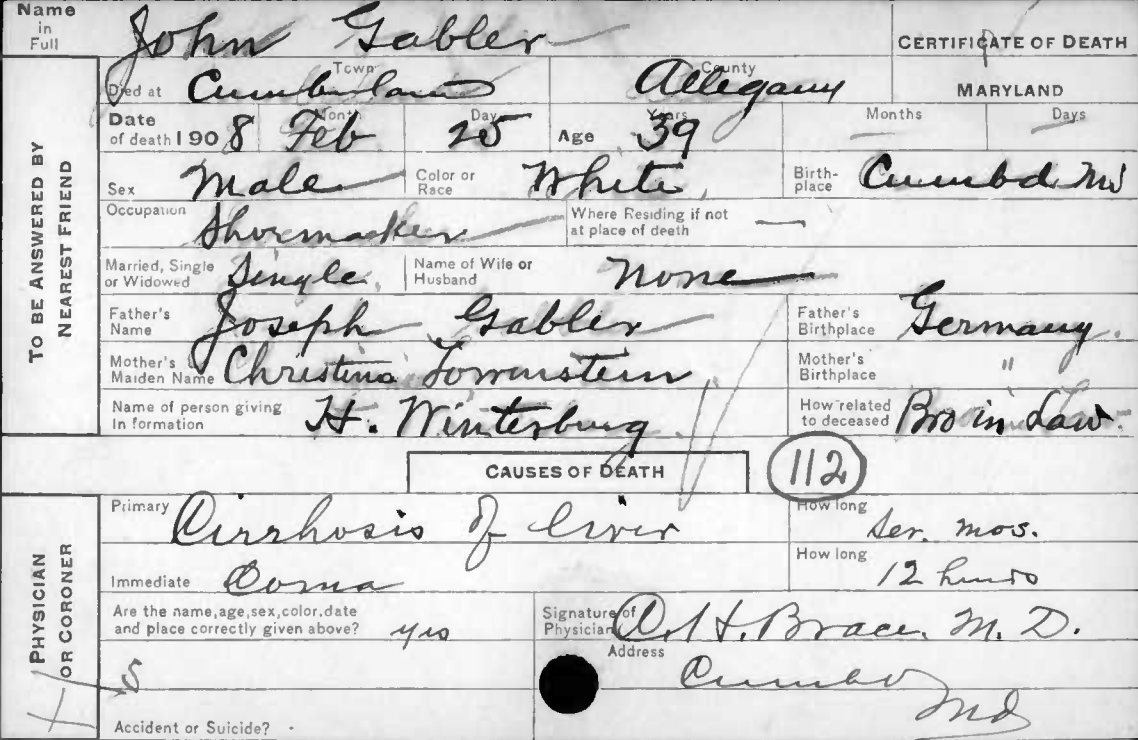 Name in Full John Gabler CERTIFICATE OF DEATH
Died at Town Cumberland County Allegany MARYLAND
Date of death 1908 Month Feb Day 25 Age Years 39 Months — Days —
Sex Male Color or Race White Birth-place Cumbd. Md
Occupation Shoemaker Where Residing if not at place of death —
Married, Single or Widowed Single Name of Wife or Husband None
Father's Name Joseph Gabler Father's Birthplace Germany.
Mother's Maiden Name Christina Mother's Birthplace "
Name of person giving Information H. Winterburg How related to deceased Bro in Law.
TO BE ANSWERED BY NEAREST FRIEND
CAUSES OF DEATH 112
Primary Cirrhosis of liver How long Sev. mos.
Immediate Coma How long 12 hours
Are the name, age, sex, color, date and place correctly given above? yes Signature of Physician H. Brace. M. D.
Address Cumbd
Md
S
Accident or Suicide? -
PHYSICIAN OR CORONER